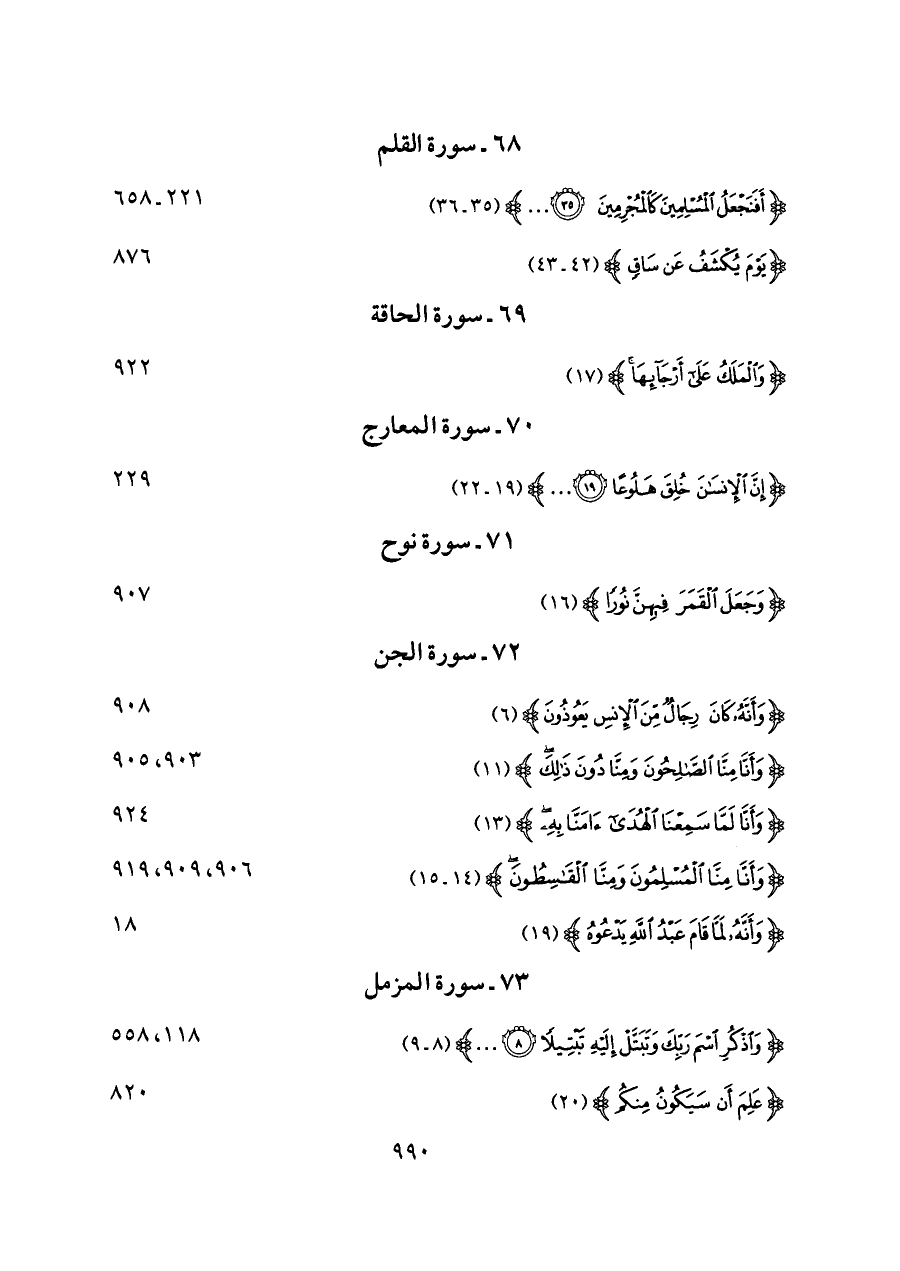 ٦٨ - سورة القلم
﴿ أَفَنَجْعَلُ ٱلْمُسْلِمِينَ كَٱلْمُجْرِمِينَ ٣٥ ... ﴾ (٣٥ - ٣٦) ٢٢١ - ٦٥٨
﴿ يَوْمَ يُكْشَفُ عَن سَاقٍ ﴾ (٤٢ - ٤٣) ٨٧٦
٦٩ - سورة الحاقة
﴿ وَٱلْمَلَكُ عَلَىٰٓ أَرْجَآئِهَا ۚ ﴾ (١٧) ٩٢٢
٧٠ - سورة المعارج
﴿ إِنَّ ٱلْإِنسَـٰنَ خُلِقَ هَلُوعًا ١٩ ... ﴾ (١٩ - ٢٢) ٢٢٩
٧١ - سورة نوح
﴿ وَجَعَلَ ٱلْقَمَرَ فِيهِنَّ نُورًا ﴾ (١٦) ٩٠٧
٧٢ - سورة الجن
﴿ وَأَنَّهُۥ كَانَ رِجَالٌ مِّنَ ٱلْإِنسِ يَعُوذُونَ ﴾ (٦) ٩٠٨
﴿ وَأَنَّا مِنَّا ٱلصَّـٰلِحُونَ وَمِنَّا دُونَ ذَٰلِكَ ۖ ﴾ (١١) ٩٠٣، ٩٠٥
﴿ وَأَنَّا لَمَّا سَمِعْنَا ٱلْهُدَىٰٓ ءَامَنَّا بِهِۦ ۖ ﴾ (١٣) ٩٢٤
﴿ وَأَنَّا مِنَّا ٱلْمُسْلِمُونَ وَمِنَّا ٱلْقَـٰسِطُونَ ۖ ﴾ (١٤ - ١٥) ٩٠٦، ٩٠٩، ٩١٩
﴿ وَأَنَّهُۥ لَمَّا قَامَ عَبْدُ ٱللَّهِ يَدْعُوهُ ﴾ (١٩) ١٨
٧٣ - سورة المزمل
﴿ وَٱذْكُرِ ٱسْمَ رَبِّكَ وَتَبَتَّلْ إِلَيْهِ تَبْتِيلًا ٨ ... ﴾ (٨ - ٩) ١١٨، ٥٥٨
﴿ عَلِمَ أَن سَيَكُونُ مِنكُم ﴾ (٢٠) ٨٢٠
٩٩٠